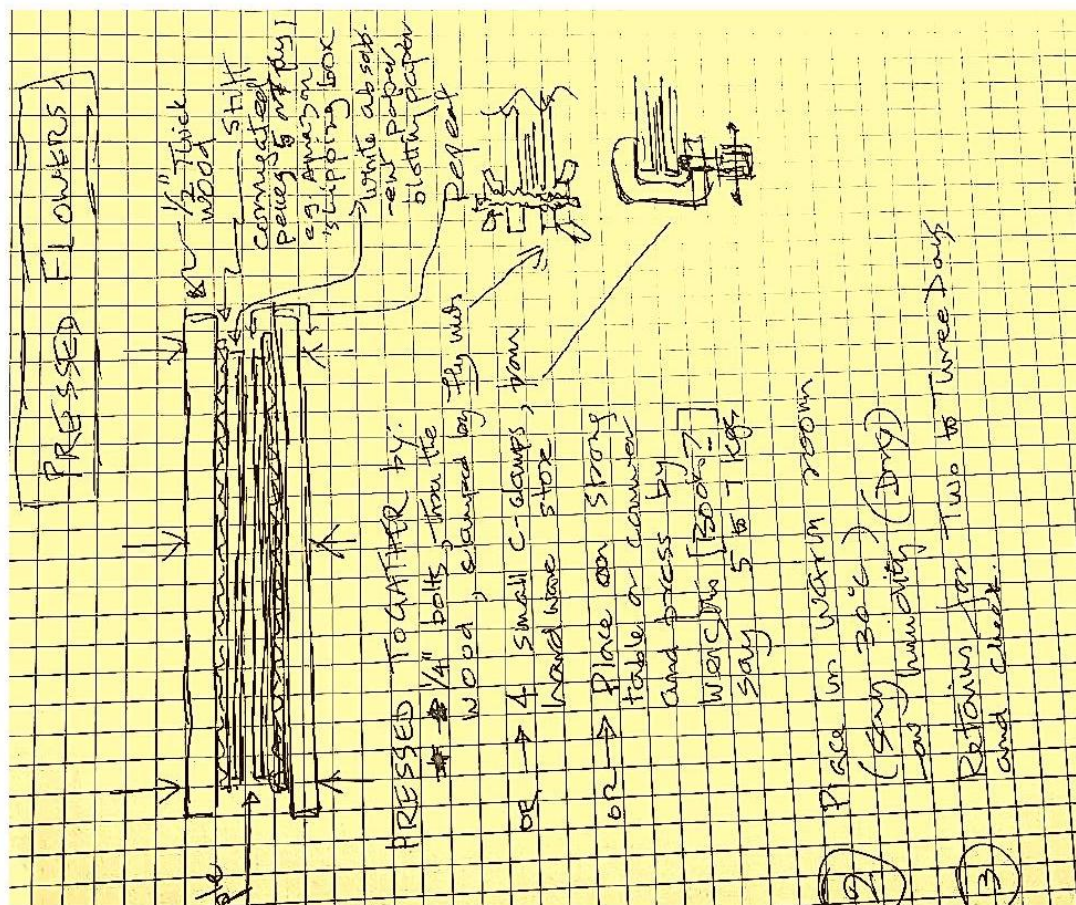 PRESSED FLOWERS
1/2" Thick
wood
Stiff
corrugated
eg Amazon
shipping box
white absorb-
-ent paper
blotting paper
Repeat
PRESSED TOGATHER by:
1/4" bolts, thru the
wood, clamped by fly nuts
OR → 4 small C-clamps, from
hardware store
OR → Place on strong
table or counter
and press by
weights [Books?]
say 5 to 7 kgs.
2 Place in warm room
(say 30°C)
Low humidity (Dry)
3 Retains for Two to Three Days
and check.